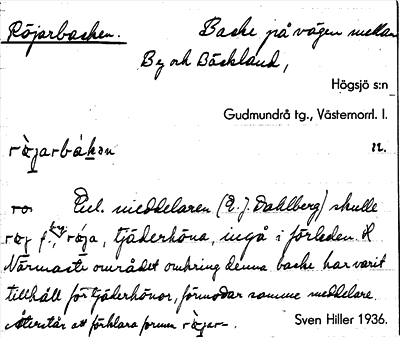 Röjarbacken. Backe på vägen mellan
By och Bäckland,
Högsjö s:n
Gudmundrå tg., Västernorrl. l.
rö̀jarbákan n.
ro. Enl. meddelaren (E. J. Dahlberg) skulle
röj f., röja, tjäderhöna, ingå i förleden.
Närmaste området omkring denna backe har varit
tillhåll för tjäderhönor, förmodar samme meddelare.
Återstår att förklara formen röjar-.
Sven Hiller 1936.